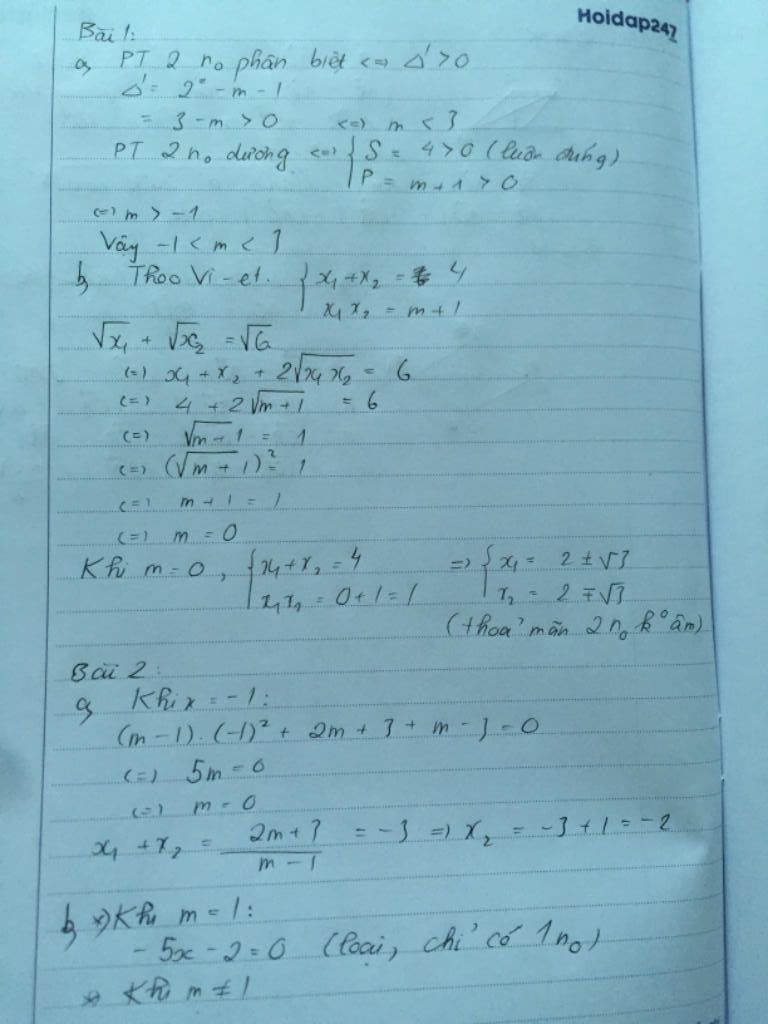 Hoidap247
Bài 1:
a, PT 2 n₀ phân biệt <=> Δ' > 0
Δ' = 2² - m - 1
= 3 - m > 0 <=> m < 3
PT 2 n₀ dương <=> { S = 4 > 0 (luôn đúng)
P = m + 1 > 0
<=> m > -1
Vậy -1 < m < 3
b, Theo Vi-et. { x₁ + x₂ = 4
x₁ x₂ = m + 1
√x₁ + √x₂ = √6
<=> x₁ + x₂ + 2√x₁ x₂ = 6
<=> 4 + 2√m+1 = 6
<=> √m+1 = 1
<=> (√m+1)² = 1
<=> m + 1 = 1
<=> m = 0
Khi m = 0, { x₁ + x₂ = 4 => { x₁ = 2 ± √3
x₁ x₂ = 0 + 1 = 1 x₂ = 2 ∓ √3
(thoả mãn 2 n₀ k° âm)
Bài 2:
a, Khi x = -1:
(m - 1). (-1)² + 2m + 3 + m - 3 = 0
<=> 5m = 0
<=> m = 0
x₁ + x₂ = 2m + 3 / m - 1 = -3 => x₂ = -3 + 1 = -2
b, *) Khi m = 1:
- 5x - 2 = 0 (loại, chỉ có 1 n₀)
*) Khi m ≠ 1